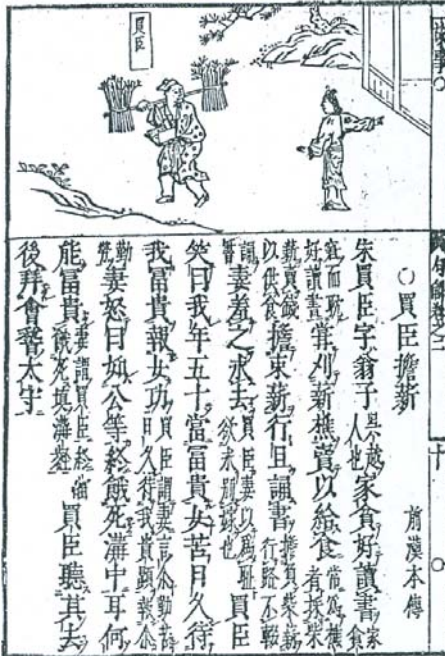 ○買臣擔薪 前漢本傳
朱買臣字翁子吳越人也家貧好讀書家
而躭好讀書常刈薪樵賣以給食常為樵者採柴
薪賣錢以供食擔束薪行且誦書擔負柴薪行路不輟
誦書妻羞之求去買臣妻以為耻欲求別嫁也買臣
笑曰我年五十當富貴女苦日久待
我富貴報女功買臣謂妻言公勤苦日久待我貴顯報公
勤勞妻怒曰如公等終餓死溝中耳何
能富貴妻謂買臣終當餓死填溝壑買臣聽其去
後拜會稽太守
買臣
十